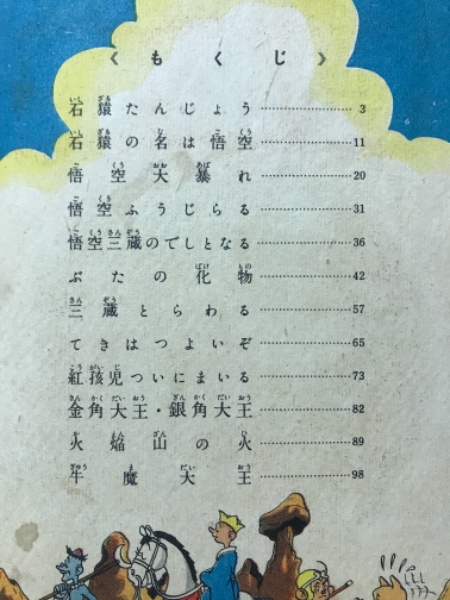 《もくじ》
石猿たんじょう 3
石猿の名は悟空 11
悟空大暴れ 20
悟空ふうじらる 31
悟空三蔵のでしとなる 36
ぶたの化物 42
三蔵とらわる 57
てきはつよいぞ 65
紅孩児ついにまいる 73
金角大王・銀角大王 82
火焔山の火 89
牛魔大王 98